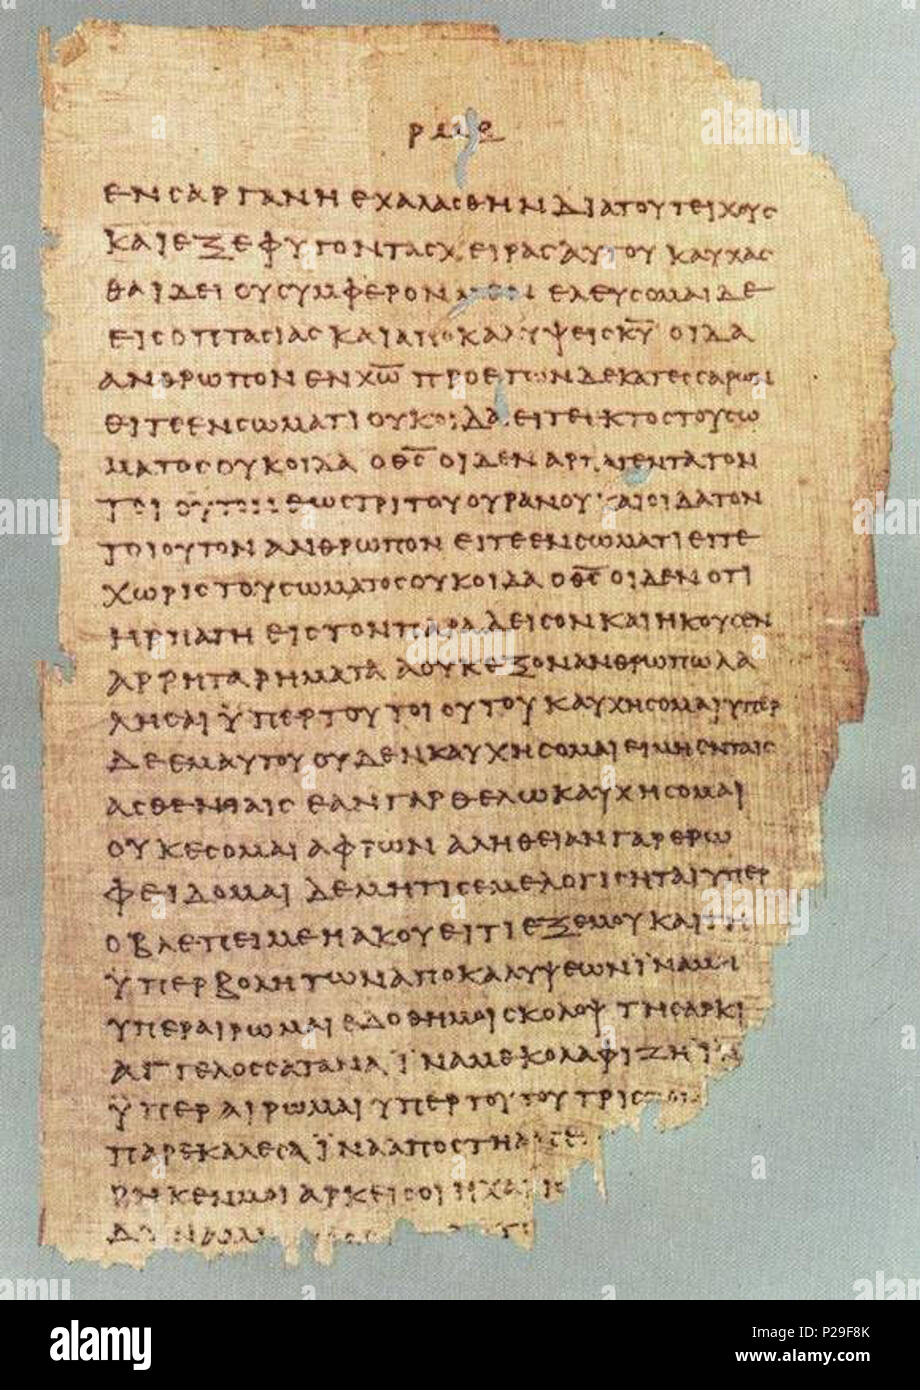 ΕΝ CΑΡΓΑΝΗ ΕΧΑΛΑCΘΗΝ ΔΙΑ ΤΟΥ ΤΕΙΧΟΥC
ΚΑΙ ΕΞΕΦΥΓΟΝ ΤΑC ΧΕΙΡΑC ΑΥΤΟΥ ΚΑΥΧΑC
ΘΑΙ ΔΕΙ ΟΥ CΥΜΦΕΡΟΝ ΕΛΕΥCΟΜΑΙ ΔΕ
ΕΙC ΟΠΤΑCΙΑC ΚΑΙ ΑΠΟΚΑΛΥΨΕΙC Κ̅Υ̅ ΟΙΔΑ
ΑΝΘΡΩΠΟΝ ΕΝ Χ̅Ω̅ ΠΡΟ ΕΤΩΝ ΔΕΚΑΤΕCCΑΡΩΝ
ΕΙΤΕ ΕΝ CΩΜΑΤΙ ΟΥΚ ΟΙΔΑ ΕΙΤΕ ΕΚΤΟC ΤΟΥ CΩ
ΜΑΤΟC ΟΥΚ ΟΙΔΑ Ο Θ̅C̅ ΟΙΔΕΝ ΑΡΠΑΓΕΝΤΑ ΤΟΝ
ΤΟΙΟΥΤΟΝ ΕΩC ΤΡΙΤΟΥ ΟΥΡΑΝΟΥ ΚΑΙ ΟΙΔΑ ΤΟΝ
ΤΟΙΟΥΤΟΝ ΑΝΘΡΩΠΟΝ ΕΙΤΕ ΕΝ CΩΜΑΤΙ ΕΙΤΕ
ΧΩΡΙC ΤΟΥ CΩΜΑΤΟC ΟΥΚ ΟΙΔΑ Ο Θ̅C̅ ΟΙΔΕΝ ΟΤΙ
ΗΡΠΑΓΗ ΕΙC ΤΟΝ ΠΑΡΑΔΕΙCΟΝ ΚΑΙ ΗΚΟΥCΕΝ
ΑΡΡΗΤΑ ΡΗΜΑΤΑ Α ΟΥΚ ΕΞΟΝ ΑΝΘΡΩΠΩ ΛΑ
ΛΗCΑΙ ΫΠΕΡ ΤΟΥ ΤΟΙΟΥΤΟΥ ΚΑΥΧΗCΟΜΑΙ ΥΠΕΡ
ΔΕ ΕΜΑΥΤΟΥ ΟΥΔΕΝ ΚΑΥΧΗCΟΜΑΙ ΕΙ ΜΗ ΕΝ ΤΑΙC
ΑCΘΕΝΙΑΙC ΕΑΝ ΓΑΡ ΘΕΛΩ ΚΑΥΧΗCΟΜΑΙ
ΟΥΚ ΕCΟΜΑΙ ΑΦΡΩΝ ΑΛΗΘΕΙΑΝ ΓΑΡ ΕΡΩ
ΦΕΙΔΟΜΑΙ ΔΕ ΜΗ ΤΙC ΕΜΕ ΛΟΓΙCΗΤΑΙ ΥΠΕΡ
Ο ΒΛΕΠΕΙ ΜΕ Η ΑΚΟΥΕΙ ΤΙ ΕΞ ΕΜΟΥ ΚΑΙ ΤΗ
ΫΠΕΡΒΟΛΗ ΤΩΝ ΑΠΟΚΑΛΥΨΕΩΝ ΪΝΑ ΜΗ
ΥΠΕΡΑΙΡΩΜΑΙ ΕΔΟΘΗ ΜΟΙ CΚΟΛΟΨ ΤΗ CΑΡΚΙ
ΑΓΓΕΛΟC CΑΤΑΝΑ ΪΝΑ ΜΕ ΚΟΛΑΦΙΖΗ ΪΝΑ
ΫΠΕΡΑΙΡΩΜΑΙ ΥΠΕΡ ΤΟΥΤΟΥ ΤΡΙC ΤΟΝ
ΠΑΡΕΚΑΛΕCΑ ΪΝΑ ΑΠΟCΤΗ ΑΠ Ε
ΚΕΝ ΜΟΙ ΑΡΚΕΙ CΟΙ Η ΧΑΡΙC
ΔΥΝΑΜ